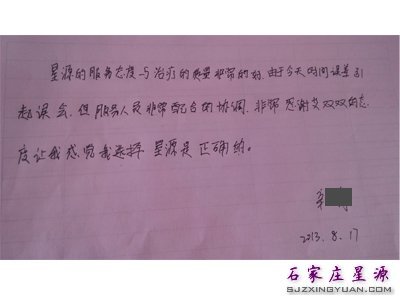 星源的服务态度与治疗的质量非常的好,由于今天时间误差引
起误会,但服务人员非常配合的协调,非常感谢艾双双的态
度让我感觉我选择星源是正确的。
2013.8.17
石家庄星源
SJZXINGYUAN.COM